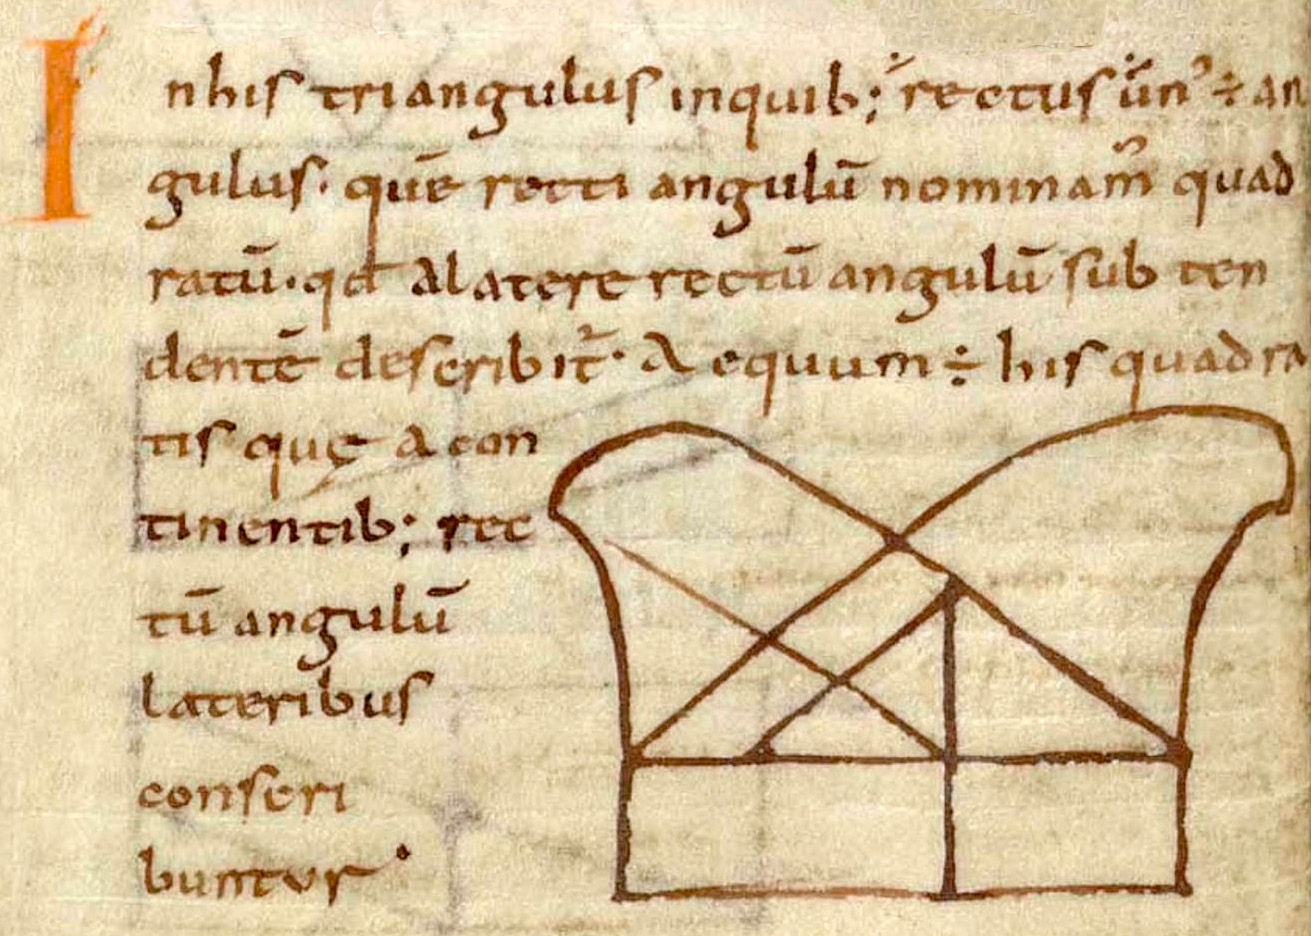 In his triangulus inquib; rectus un᾿ ÷ an
gulus. quē recti angulū nominam᾿ quad
ratū. qđ Alatere rectū angulū sub ten
dentē describit᾿. Aequum ÷ his quadra
tis quę a con
tinentib; rec
tū angulū
lateribus
conscri
buntur.